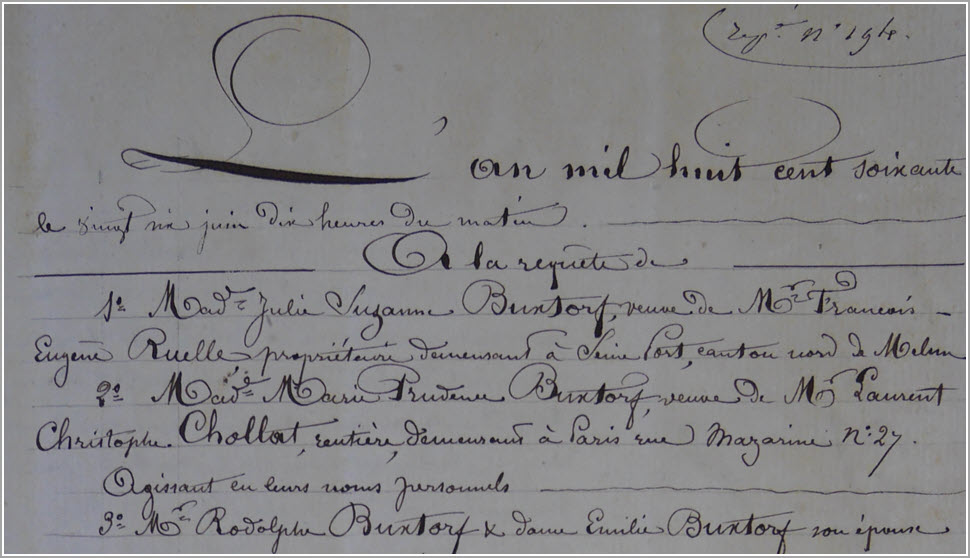 Rep.re n° 194.
L'an mil huit cent soixante
le vingt six juin dix heures du matin.
A la requête de
1° Mad.e Julie Suzanne Buxtorf, veuve de Mr. François-
Eugène Ruelle, propriétaire demeurant à Seine Port, canton nord de Melun
2° Mad.e Marie Prudence Buxtorf, veuve de Mr. Laurent
Christophe Chollat, rentière, demeurant à Paris rue Mazarine n° 27.
Agissant en leurs noms personnels
3° Mr. Rodolphe Buxtorf & dame Emilie Buxtorf son épouse